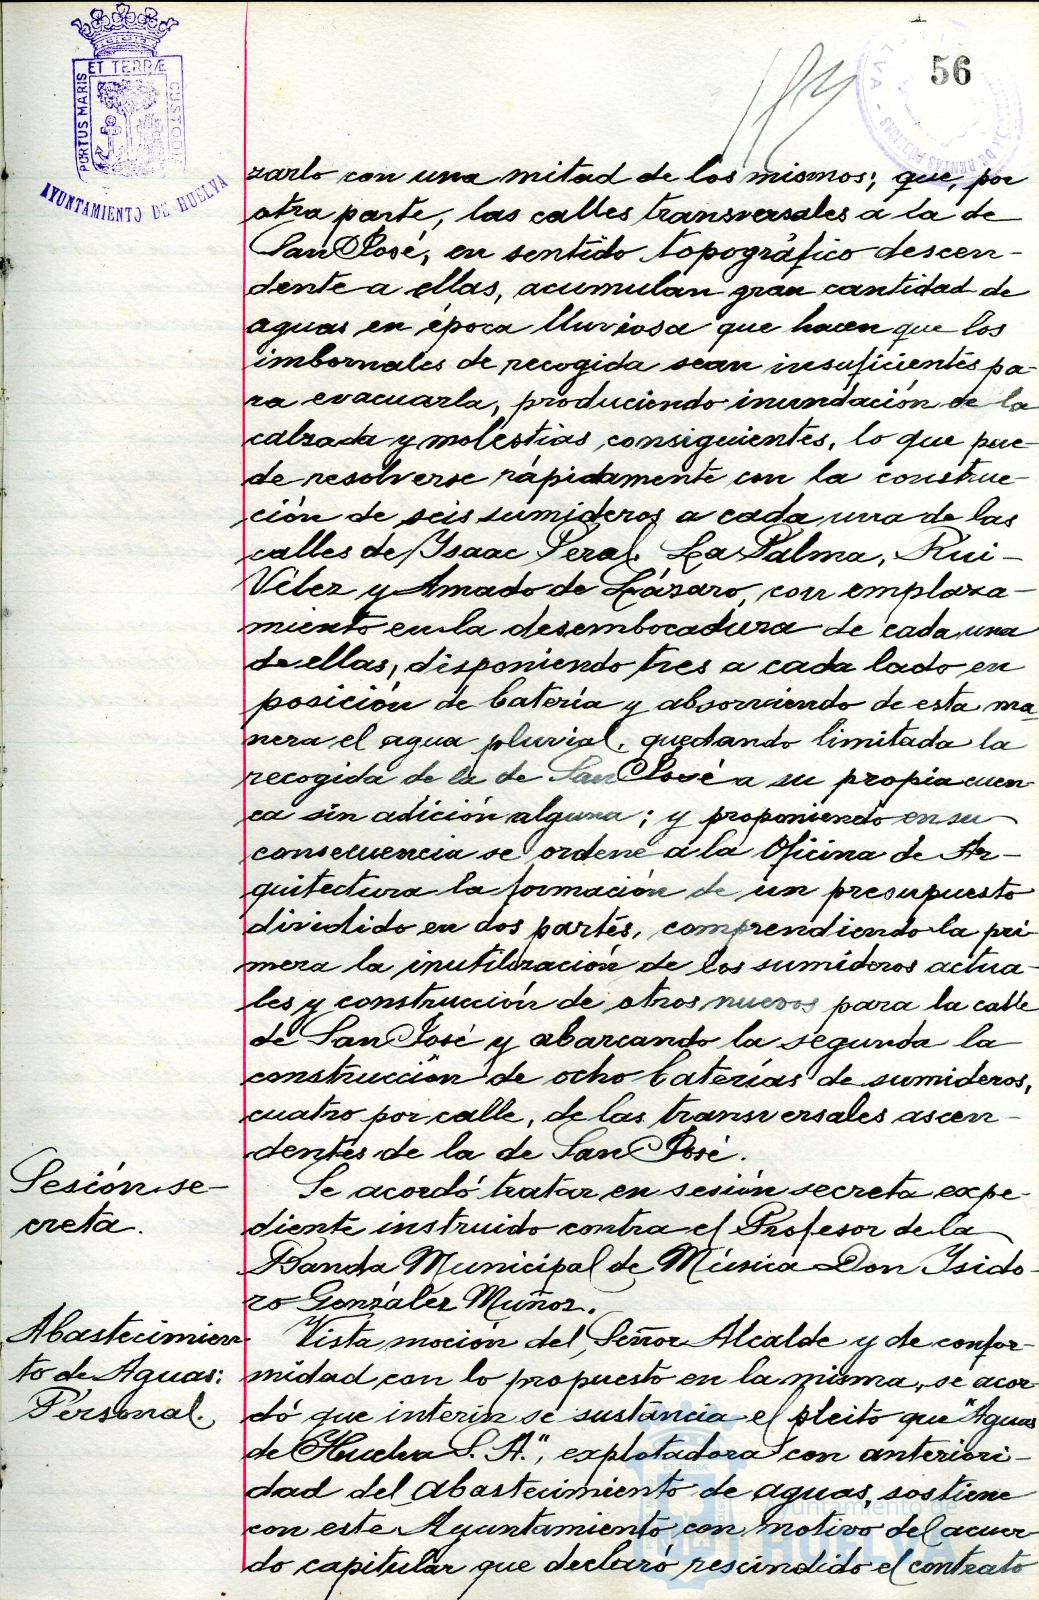 56
ET TERRÆ
PORTUS MARIS
CUSTODIA
AYUNTAMIENTO DE HUELVA
zarlo con una mitad de los mismos; que, por
otra parte, las calles transversales a la de
San José, en sentido topográfico descen-
dente a ellas, acumulan gran cantidad de
aguas en época lluviosa que hacen que los
imbornales de recogida sean insuficientes pa-
ra evacuarla, produciendo inundación de la
calzada y molestias consiguientes, lo que pue-
de resolverse rápidamente con la construc-
ción de seis sumideros a cada una de las
calles de Isaac Peral, La Palma, Rui-
Vélez y Amado de Lázaro, con emplaza-
miento en la desembocadura de cada una
de ellas, disponiendo tres a cada lado en
posición de batería y absorviendo de esta ma-
nera el agua pluvial, quedando limitada la
recogida de la de San José a su propia cuen-
ca sin adición alguna; y proponiendo en su
consecuencia se ordene a la Oficina de Ar-
quitectura la formación de un presupuesto
dividido en dos partes, comprendiendo la pri-
mera la inutilización de los sumideros actua-
les y construcción de otros nuevos para la calle
de San José y abarcando la segunda la
construcción de ocho baterías de sumideros,
cuatro por calle, de las transversales ascen-
dentes de la de San José.
Sesión se-
creta.
Se acordó tratar en sesión secreta expe-
diente instruido contra el Profesor de la
Banda Municipal de Música Don Isido-
ro González Muñoz.
Abastecimien-
to de Aguas:
Personal.
Vista moción del Señor Alcalde y de confor-
midad con lo propuesto en la misma, se acor-
dó que interin se sustancia el pleito que "Aguas
de Huelva S. A.", explotadora con anteriori-
dad del abastecimiento de aguas, sostiene
con este Ayuntamiento con motivo del acuer-
do capitular que declaró rescindido el contrato
Ayuntamiento de
HUELVA